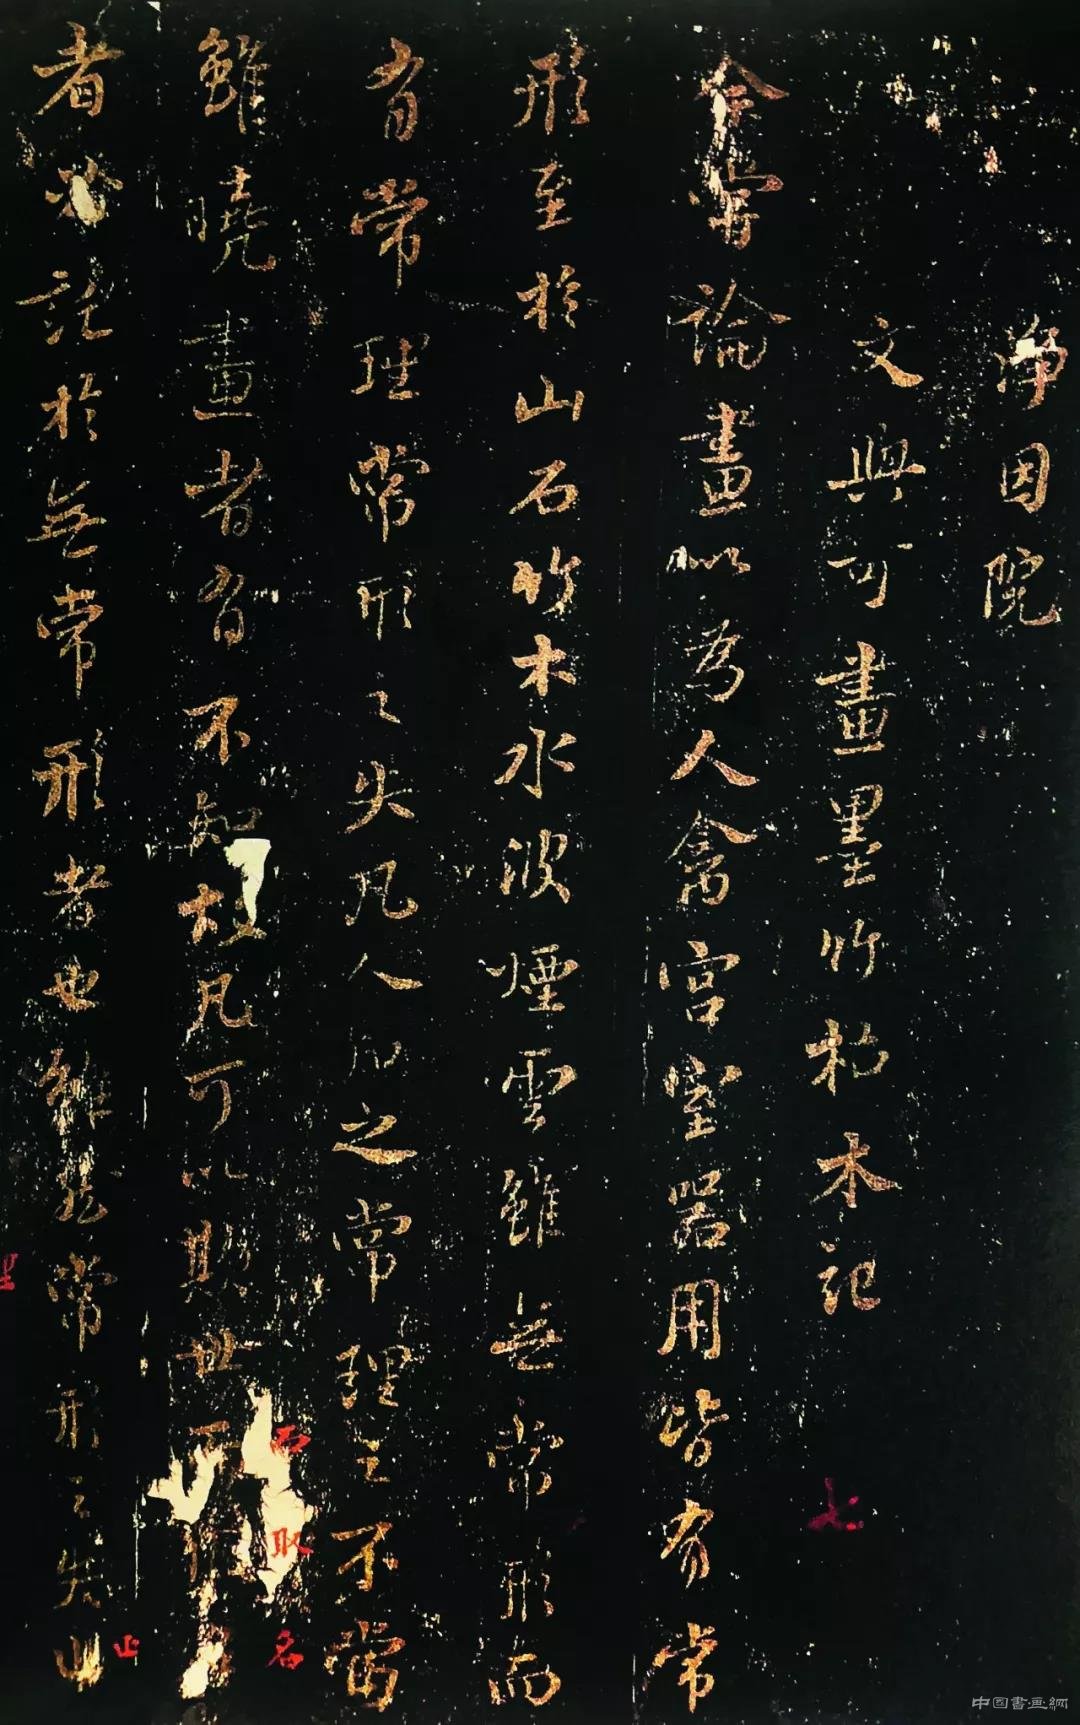 净因院
文與可畫墨竹枯木記
余嘗論畫以為人禽宮室器用皆有常
形至於山石竹木水波煙雲雖無常形而
有常理常形之失凡人知之常理之不當
雖曉畫者有不知故凡可以欺世而取名
者必託於無常形者也雖然常形之失止
而取名
止
七
中国書画網